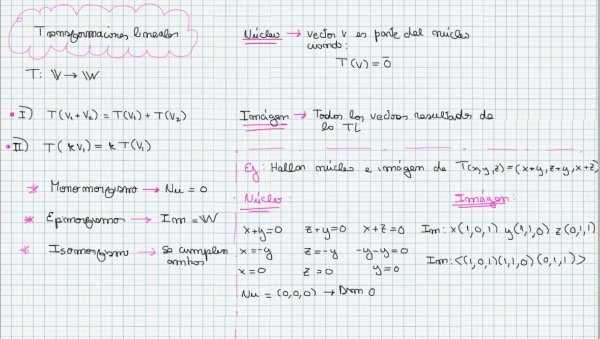 Transformaciones lineales
T: V → W
I) T(V₁+V₂) = T(V₁) + T(V₂)
II) T(kV₁) = k T(V₁)
* Monomorfismo → Nu = 0
* Epimorfismo → Im = W
* Isomorfismo → Se cumplen
ambos
Núcleo → vector v es parte del núcleo
cuando:
T(v) = 0̄
Imágen → Todos los vectores resultados de
la TL
Ej: Hallar núcleo e imágen de T(x,y,z)=(x+y, z+y, x+z)
Núcleo:
x+y=0 z+y=0 x+z=0
x=-y z=-y -y-y=0
x=0 z=0 y=0
Nu = (0,0,0) → Dim 0
Imágen:
Im: x(1,0,1) y(1,1,0) z(0,1,1)
Im: <(1,0,1)(1,1,0)(0,1,1)>